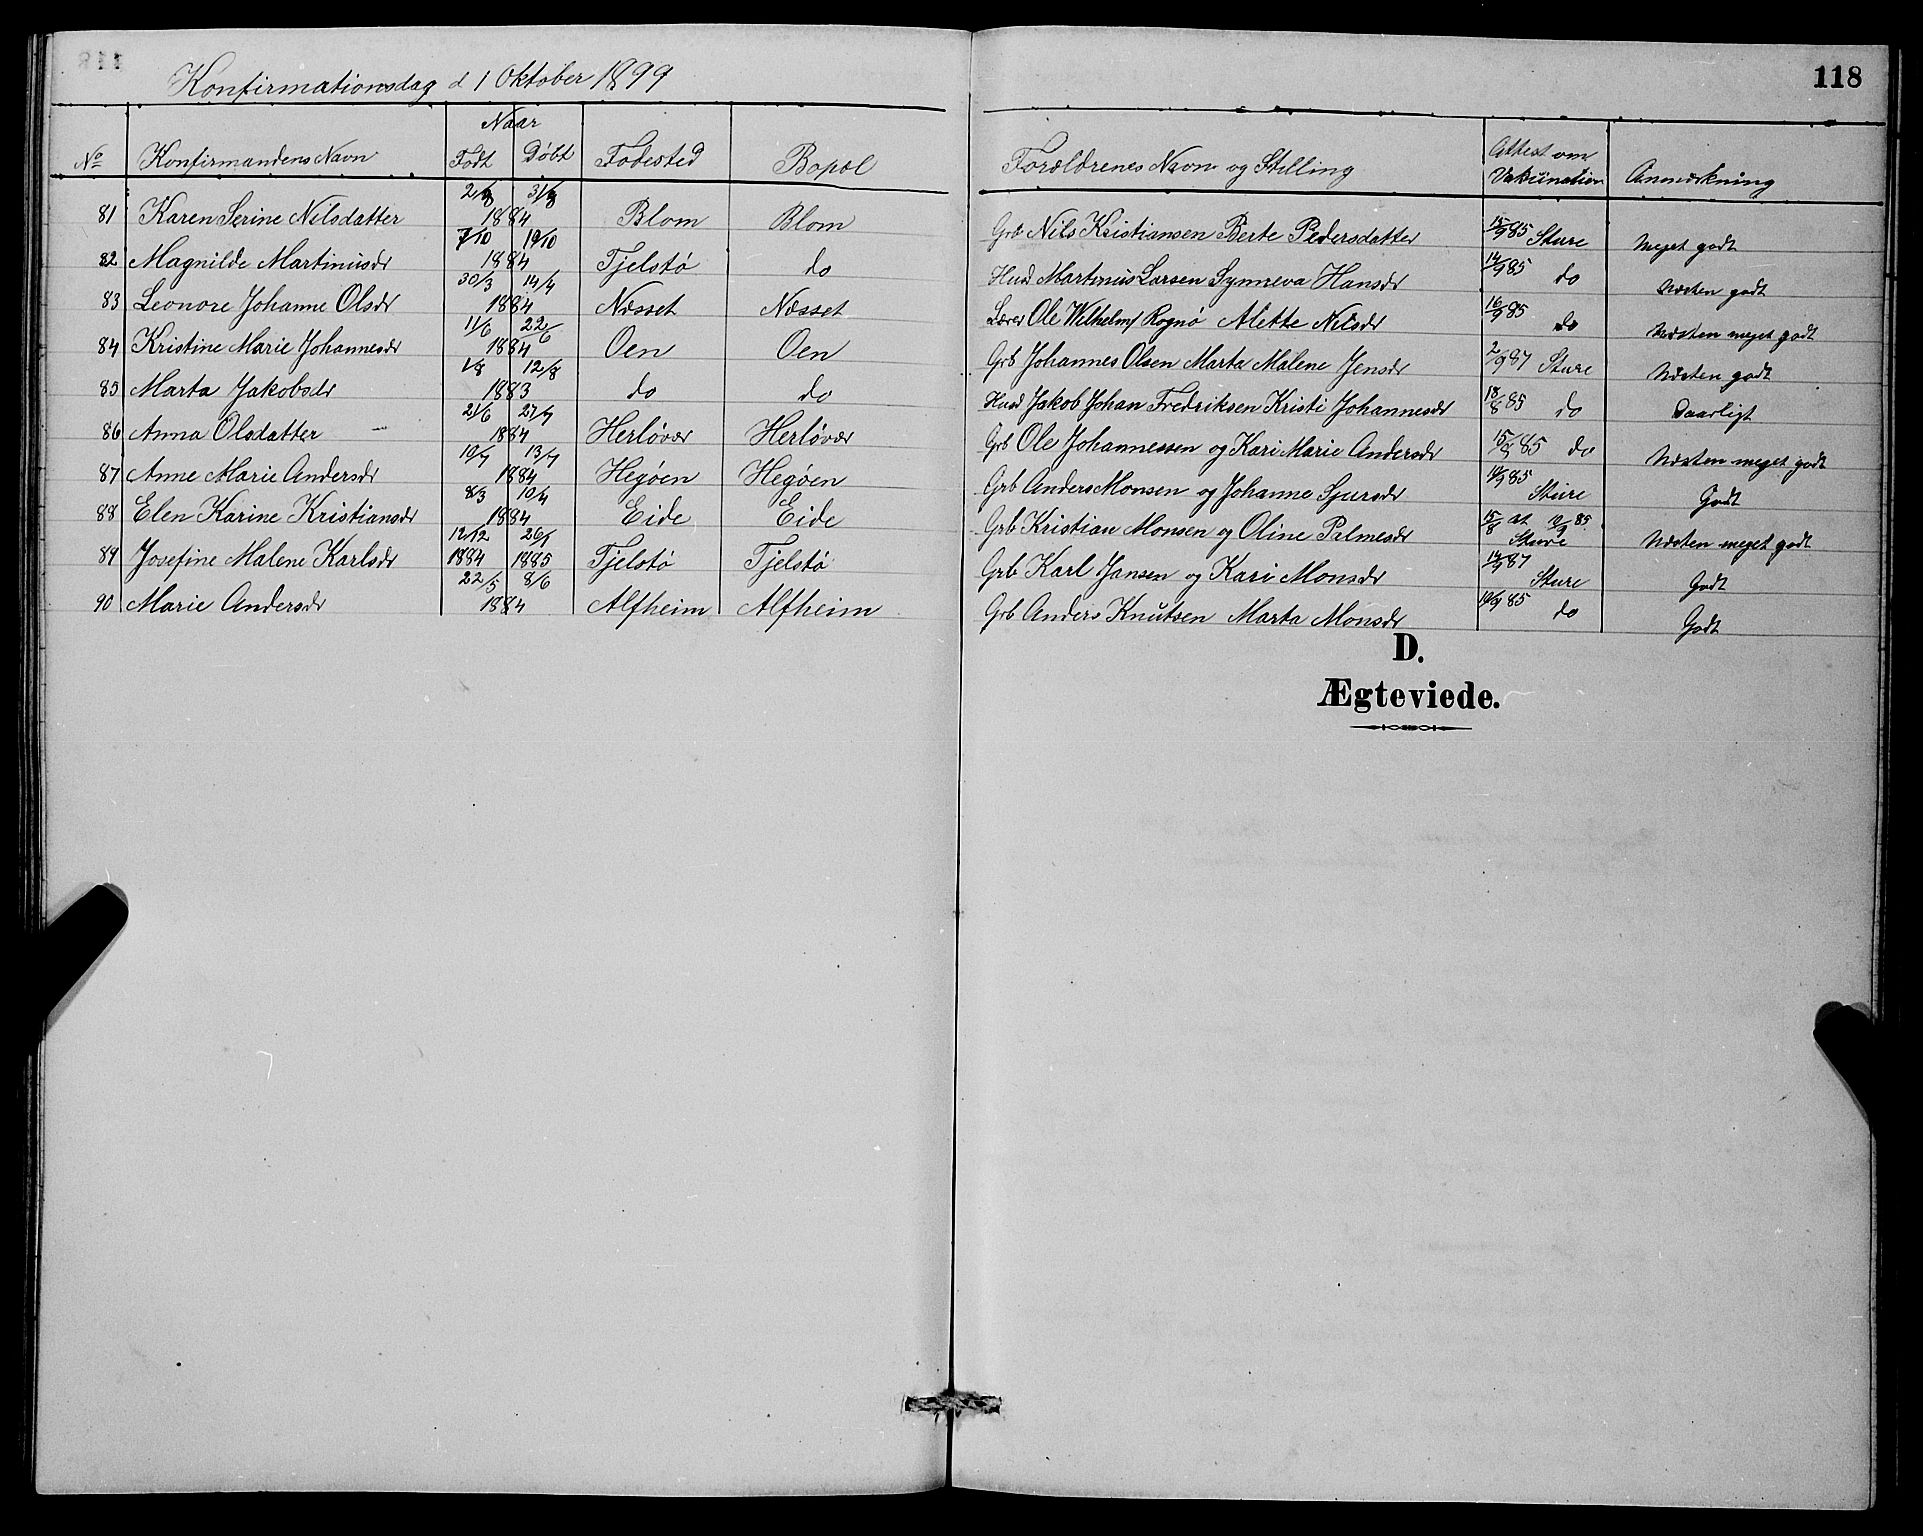 Konfirmationsdag d 1 Oktober 1899
118
Naar
No Konfirmandens Navn Födt Döbt Födested Bopæl Forældrenes Navn og Stilling Attest om Vakcination Anmærkning
81 Karen Serine Nilsdatter 2/8 31/8 1884 Blom Blom Grb Nils Kristiansen Berte Pedersdatter 15/9 85 Sture Meget godt
82 Magnilde Martinusdr 7/10 19/10 1884 Tjelstø do Husd Martinus Larsen Synneva Hansdr 14/9 85 do Næsten godt
83 Leonore Johanne Olsdr 30/3 14/4 1884 Næsset Næsset Lærer Ole Wilhelm Rognø Alette Nilsdr 16/9 85 do Næsten meget godt
84 Kristine Marie Johannesdr 11/6 22/6 1884 Oen Oen Grb Johannes Olsen Marta Malene Jensdr 2/9 87 Sture Næsten godt
85 Marta Jakobsdr 1/8 12/8 1883 do do Husd Jakob Johan Fredriksen Kristi Johannesdr 18/8 85 do Daarligt
86 Anna Olsdatter 21/6 27/7 1884 Herløvær Herløvær Grb Ole Johannessen og Kari Marie Andersdr 15/8 85 do Næsten meget godt
87 Anne Marie Andersdr 10/7 13/7 1884 Hegøen Hegøen Grb Anders Monsen og Johanne Sjursdr 14/9 85 Sture Godt
88 Elen Karine Kristiansdr 8/3 10/4 1884 Eide Eide Grb Kristian Monsen og Oline Palmesdr 15/8 at 10/9 85 Sture Næsten meget godt
89 Josefine Malene Karlsdr 12/12 1884 26/1 1885 Tjelstø Tjelstø Grb Karl Jansen og Kari Monsdr 12/9 87 Sture Godt
90 Marie Andersdr 22/5 8/6 1884 Alfheim Alfheim Grb Anders Knutsen Marta Monsdr 14/9 85 do Godt
D.
Ægteviede.